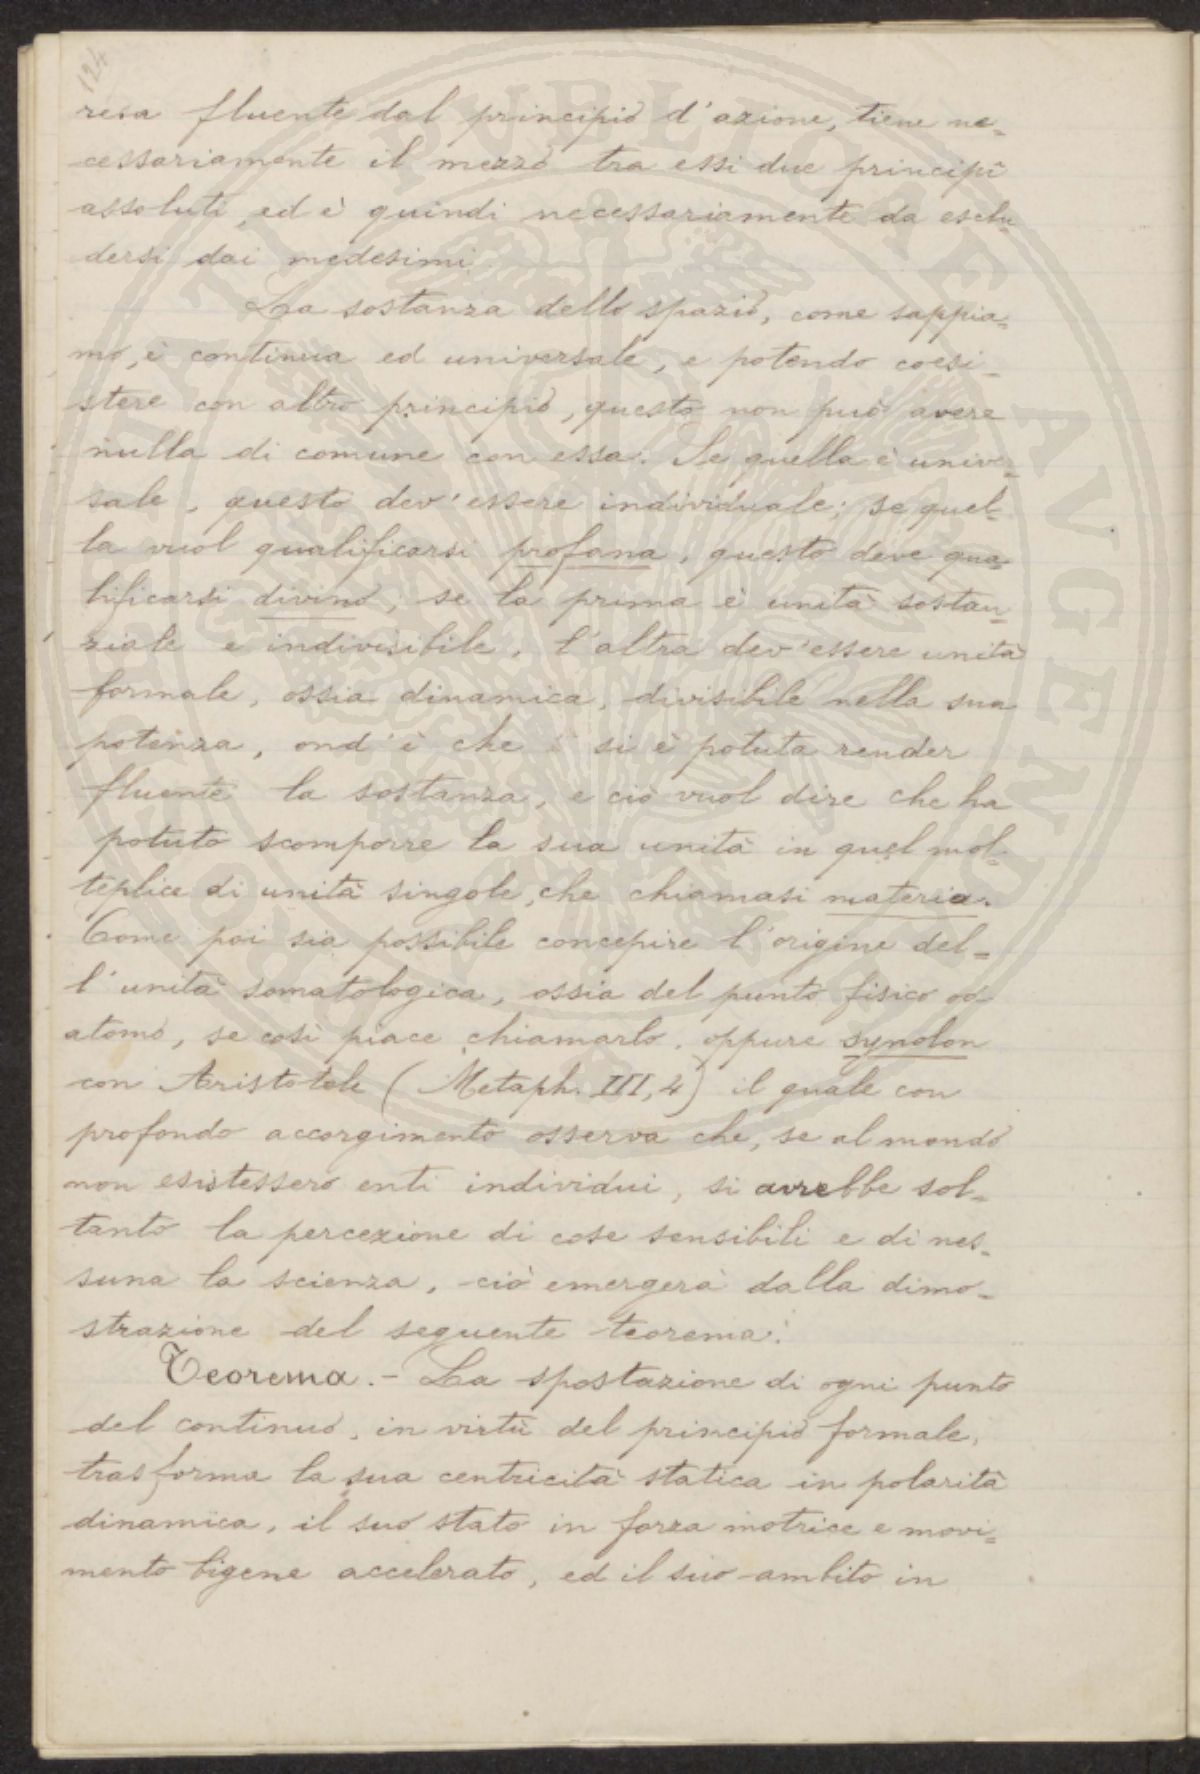 124
resa fluente dal principio d'azione, tiene ne=
cessariamente il mezzo tra essi due principî
assoluti, ed è quindi necessariamente da esclu=
dersi dai medesimi.
La sostanza dello spazio, come sappia=
mo, è continua ed universale, e potendo coesi=
stere con altro principio, questo non può avere
nulla di comune con essa. Se quella è univer=
sale, questo dev'essere individuale; se quel=
la vuol qualificarsi profana, questo deve qua=
lificarsi divino; se la prima è unità sostan=
ziale e indivisibile, l'altra dev'essere unità
formale, ossia dinamica, divisibile nella sua
potenza, ond'è che si è potuta render
fluente la sostanza, e ciò vuol dire che ha
potuto scomporre la sua unità in quel mol=
teplice di unità singole, che chiamasi materia.
Come poi sia possibile concepire l'origine del=
l'unità somatologica, ossia del punto fisico od
atomo, se così piace chiamarlo, oppure synolon
con Aristotele (Metaph. III, 4) il quale con
profondo accorgimento osserva che, se al mondo
non esistessero enti individui, si avrebbe sol=
tanto la percezione di cose sensibili e di nes=
suna la scienza, ciò emergerà dalla dimo=
strazione del seguente teorema:
Teorema.- La spostazione di ogni punto
del continuo, in virtù del principio formale,
trasforma la sua centricità statica in polarità
dinamica, il suo stato in forza motrice e movi=
mento bigene accelerato, ed il suo ambito in